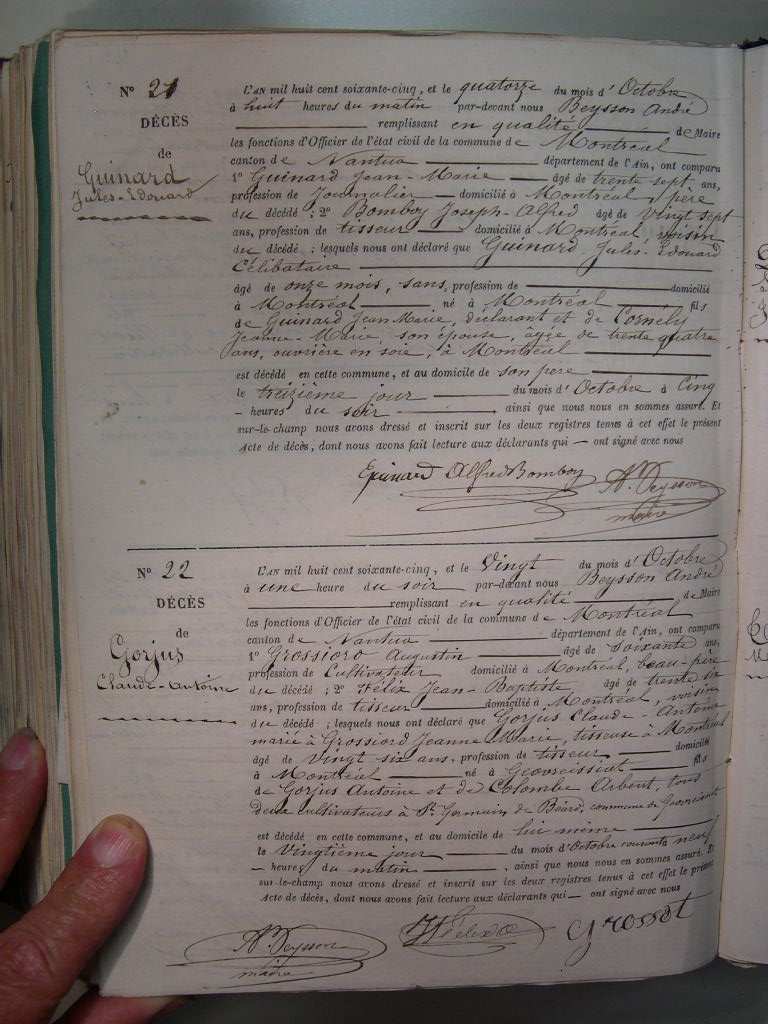 N° 21
DÉCÈS
de
Guinard
Jules-Edouard
L'AN mil huit cent soixante-cinq, et le quatorze du mois d'Octobre
à huit heures du matin par-devant nous Beysson André
remplissant en qualité de Maire
les fonctions d'Officier de l'état civil de la commune de Montréal
canton de Nantua département de l'Ain, ont comparu
1° Guinard Jean-Marie âgé de trente sept ans,
profession de Journalier domicilié à Montréal, père
du décédé ; 2° Bomboy Joseph-Alfred âgé de vingt sept
ans, profession de tisseur domicilié à Montréal voisin
du décédé ; lesquels nous ont déclaré que Guinard Jules-Edouard
Célibataire
âgé de onze mois, sans profession de domicilié
à Montréal né à Montréal fils
de Guinard Jean Marie, déclarant et de Cornély
Jeanne-Marie, son épouse, âgée de trente quatre
ans, ouvrière en soie, à Montréal
est décédé en cette commune, et au domicile de son père
le treizième jour du mois d'Octobre à Cinq
heures du soir ainsi que nous nous en sommes assuré. Et
sur-le-champ nous avons dressé et inscrit sur les deux registres tenus à cet effet le présent
Acte de décès, dont nous avons fait lecture aux déclarants qui ont signé avec nous
Guinard Alfred Bomboy
A. Beysson
maire
N° 22
DÉCÈS
de
Gorjus
Claude-Antoine
L'AN mil huit cent soixante-cinq, et le Vingt du mois d'Octobre
à une heure du soir par-devant nous Beysson André
remplissant en qualité de Maire
les fonctions d'Officier de l'état civil de la commune de Montréal
canton de Nantua département de l'Ain, ont comparu
1° Grossiord Augustin âgé de soixante ans,
profession de Cultivateur domicilié à Montréal, beau-père
du décédé ; 2° Félix Jean-Baptiste, âgé de trente six
ans, profession de tisseur domicilié à Montréal, voisin
du décédé ; lesquels nous ont déclaré que Gorjus Claude-Antoine
marié à Grossiord Jeanne Marie, tisseuse à Montréal
âgé de vingt six ans, profession de tisseur domicilié
à Montréal né à Geovreissiat fils
de Gorjus Antoine et de Colombe Arbent, tous
deux cultivateurs à St Germain de Béard, commune de Geovreissiat
est décédé en cette commune, et au domicile de lui même
le Vingtième jour du mois d'Octobre courant à neuf
heures du matin, ainsi que nous nous en sommes assuré. Et
sur-le-champ nous avons dressé et inscrit sur les deux registres tenus à cet effet le présent
Acte de décès, dont nous avons fait lecture aux déclarants qui ont signé avec nous
A. Beysson
maire